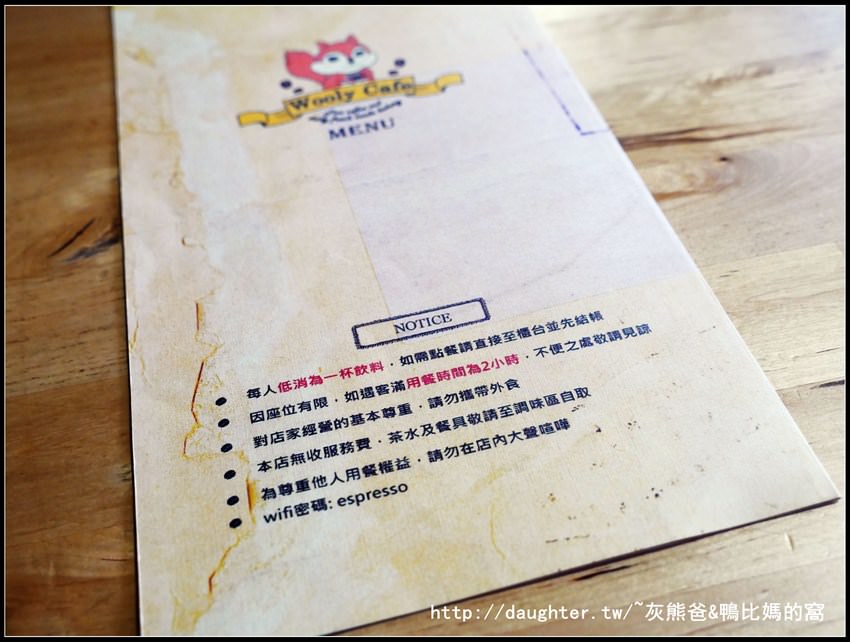 Wooly Cafe
MENU
NOTICE
每人低消為一杯飲料，如需點餐請直接至櫃台並先結帳
因座位有限，如遇客滿用餐時間為2小時，不便之處敬請見諒
對店家經營的基本尊重，請勿攜帶外食
本店無收服務費，茶水及餐具敬請至調味區自取
為尊重他人用餐權益，請勿在店內大聲喧嘩
wifi密碼: espresso
http://daughter.tw/~灰熊爸&鴨比媽的窩